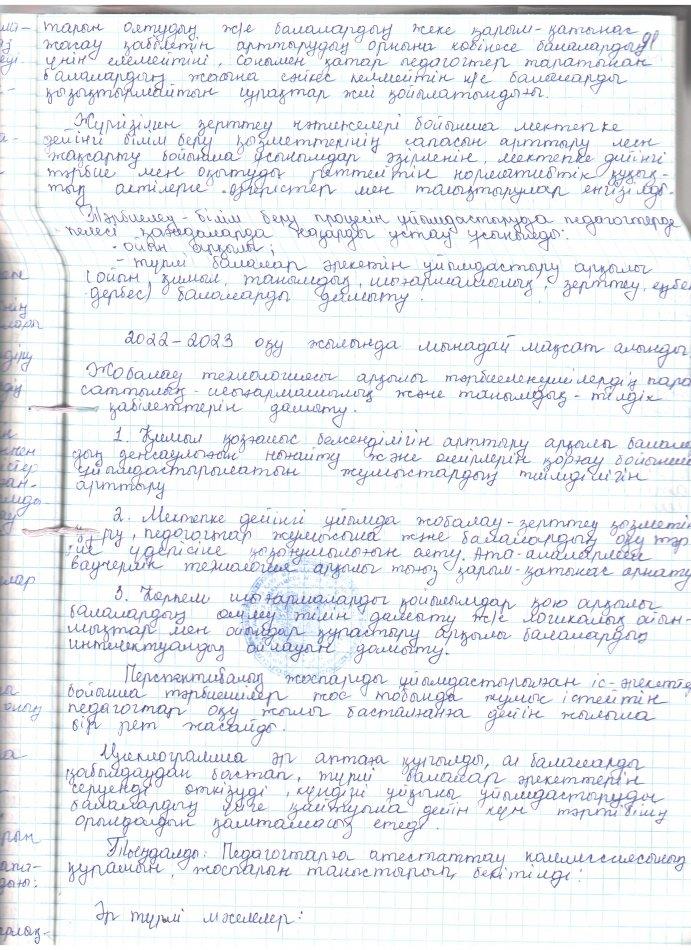 тарын оятудың ж/е балалардың жеке қарым-қатынас
жасау қабілетін арттырудың орнына көбінесе балалардың
үнін елемейтіні, сонымен қатар педагогтер таратылған
балалардың жасына сәйкес келмейтін ж/е балаларды
қызықтырмайтын сұрақтар жиі қойылатындығы.
Жүргізілген зерттеу нәтижелері бойынша мектепке
дейінгі білім беру қызметтерінің сапасын арттыру мен
жақсарту бойынша ұсынымдар әзірленіп, мектепке дейінгі
тәрбие мен оқытуды реттейтін нормативтік құқық-
тық актілерге өзгерістер мен толықтырулар енгізілді.
Тәрбиелеу-білім беру процесін ұйымдастыруда педагогтерде
келесі қағидаларда назарды ұстау ұсынылды:
- ойын арқылы;
- түрлі балалар әрекетін ұйымдастыру арқылы
(ойын қимыл, танымдық, шығармашылық, зерттеу, еңбек
дербес) балаларды дамыту.
2022-2023 оқу жылында мынадай мақсат алынды
Жобалау технологиясы арқылы тәрбиеленушілердің пара
саттылық-шығармашылық және танымдық-тілдік
қабілеттерін дамыту.
1. Қимыл қозғалыс белсенділігін арттыру арқылы балала
дың денсаулығын нығайту және өмірлерін қорғау бойынша
ұйымдастырылатын жұмыстардың тиімділігін
арттыру
2. Мектепке дейінгі ұйымда жобалау-зерттеу қызметін
құру, педагогтар жұмысына және балалардың оқу тәр
үдерісіне қызығушылығын ояту. Ата-аналармен
ваучерлік технология арқылы тығыз қарым-қатынас орнату
3. Көркем шығармаларды қойылымдар қою арқылы
балалардың сөйлеу тілін дамыту ж/е логикалық ойын-
мықтар мен ойындар құрастыру арқылы балалардың
интеллектуалдық ойлауын дамыту.
Перспективалық жоспарды ұйымдастырылған іс-әрекетте
бойынша тәрбиешілер жас тобында жұмыс істейтін
педагогтар оқу жылы басталғанға дейін жылына
бір рет жасайды.
Циклограмма әр аптаға құрылды, ал балаларды
қабылдаудан бастап, түрлі балалар әрекеттерін
серуенді өткізуді, күндізгі ұйқыны ұйымдастыруды
балалардың үйге қайтуына дейін күн тәртібінің
орындалуын қамтамасыз етеді.
Тыңдалды: Педагогтарға аттестаттау комиссиясының
құрамын, жоспарын таныстырып, бекітілді.
Әр түрлі мәселелер: